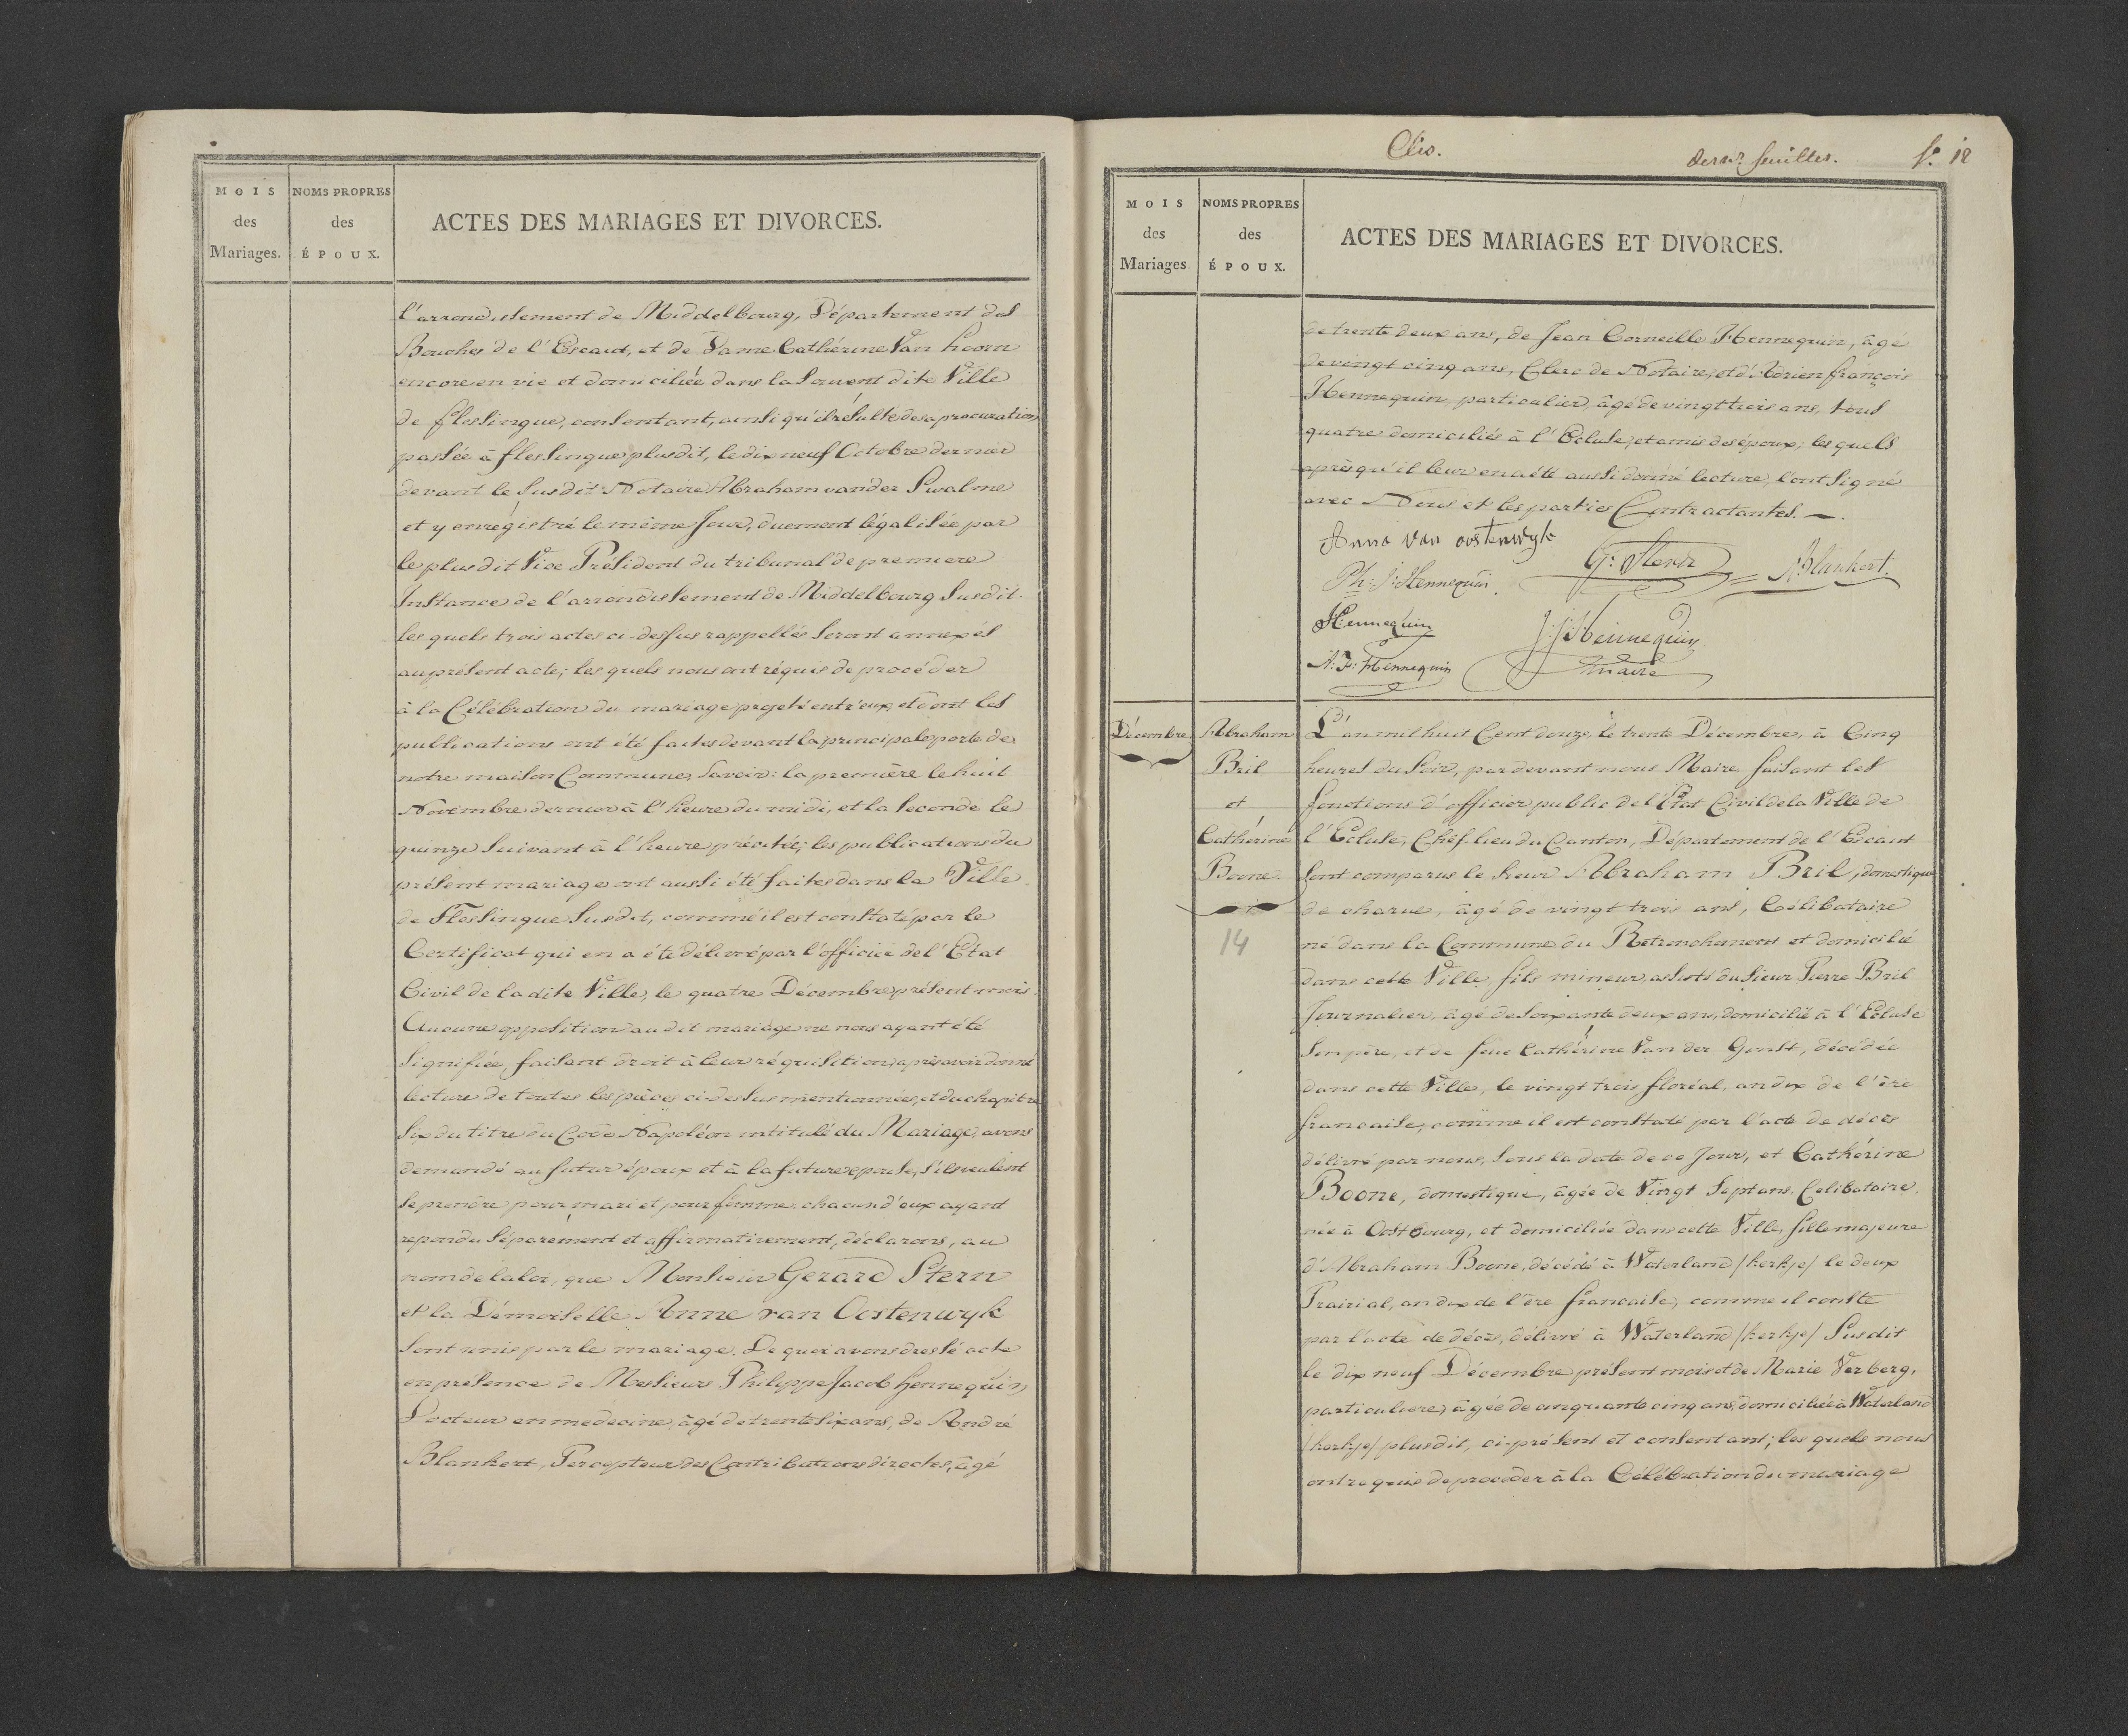 MOIS
des
Mariages.
NOMS PROPRES
des
ÉPOUX.
ACTES DES MARIAGES ET DIVORCES.
l'arrondissement de Middelbourg, Département des
Bouches de l'Escaut, et de Dame Cathérine Van hoorn
encore en vie et domiciliée dans la souvent dite Ville
de flessingue, consentant, ainsi qu'il résulte de sa procuration
passée à flessingue plusdit, le dix neuf Octobre dernier
devant le susdit Notaire Abraham vander Swalme
et y enrégistré le même Jour, duement légalisée par
le plusdit Vice Président du tribunal de premiere
Instance de l'arrondissement de Middelbourg Susdit.
les quels trois actes ci-dessus rappellés seront annexés
au présent acte; les quels nous ont réquis de procéder
à la Célébration du mariage projeté entr'eux, et dont les
publications ont été faites devant la principale porte de
notre maison Commune, Savoir: la première le huit
Novembre dernier à l'heure du midi, et la seconde le
quinze suivant à l'heure précitée; les publications du
présent mariage ont aussi été faites dans la Ville
de Flessingue Susdit, comme il est constaté par le
Certificat qui en a été délivré par l'officier de l'Etat
Civil de la dite Ville, le quatre Décembre présent mois.
Aucune opposition au dit mariage ne nous ayant été
signifiée, faisant droit à leur réquisition, après avoir donné
lecture de toutes les pièces ci-dessus mentionnées, et du chapitre
Six du titre du Code Napoléon intitulé du Mariage, avons
demandé au futur époux et à la future epouse, s'ils veulent
se prendre pour mari et pour femme. chacun d'eux ayant
repondu séparement et affirmativement, déclarons, au
nom de la loi, que Monsieur Gerard Stern
et la Démoiselle Anne van Oostenwyk
sont unis par le mariage. De quoi avons dressé acte
en présence de Messieurs Philippe Jacob Hennequin
Docteur en medecine, âgé de trente six ans, de André
Blankert, Percepteur des Contributions directes, âgé
derer feuilles. f. 12
MOIS
des
Mariages
NOMS PROPRES
des
ÉPOUX.
ACTES DES MARIAGES ET DIVORCES.
de trente deux ans, de Jean Corneille Hennequin, âgé
de vingt cinq ans, Clerc de Notaire, et d'Adrien françois
Hennequin, particulier, âgé de vingt trois ans, tous
quatre domiciliés à l'Ecluse, et amis des époux; les quels
après qu'il leur en a été aussi donné lecture, l'ont signé
avec Nous et les parties Contractantes.
Anna van oostenwyk
G: Stern
A Blankert.
Ph: J: Hennequin.
Hennequin
J: J: Hennequin
maire
A: F: Hennequin
Décembre
Abraham
Bril
et
Cathérine
Boone.
14
L'an mil huit Cent douze, le trente Décembre, à Cinq
heures du Soir, par devant nous Maire faisant les
fonctions d'officier public de l'Etat Civil de la Ville de
l'Ecluse, Chef-lieu du Canton, Département de l'Escaut
Sont comparus le Sieur Abraham Bril, domestique
de charue, âgé de vingt trois ans, Célibataire
né dans la Commune du Retranchement et domicilié
dans cette Ville, fils mineur, assisté du Sieur Pierre Bril
Journalier, âgé de soixante deux ans, domicilié à l'Ecluse
son père, et de feue Cathérine Van der Genst, décédée
dans cette Ville, le vingt trois floréal, an dix de l'ère
francaise, comme il est constaté par l'acte de décès
délivré par nous, sous la date de ce Jour, et Cathérine
Boone, domestique, âgée de Vingt Sept ans, Celibataire,
née à Oostbourg, et domiciliée dans cette Ville, fille majeure
d'Abraham Boone, décédé à Waterland /kerkje/ le deux
Prairial, an dix de l'ère francaise, comme il conste
par l'acte de décès, délivré à Waterland /kerkje/ Susdit
le dix neuf Décembre présent mois et de Marie Verberg,
particuliere, âgée de cinquante cinq ans, domiciliée à Waterland
/kerkje/ plusdit, ci-présent et consentant; les quels nous
ont requis de procéder à la Célébration du mariage